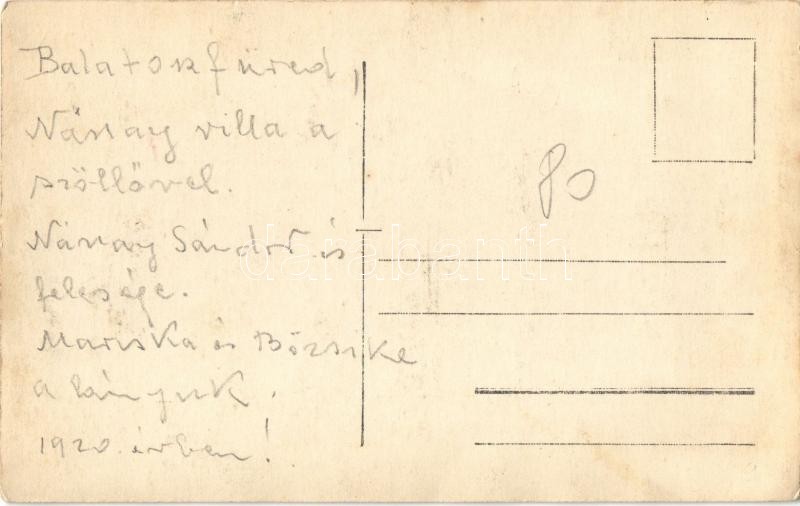 Balatonfüred,
Nánay villa a
szöllővel.
Nánay Sándor és
felesége.
Mariska és Bözsike
a lányuk.
1920. évben!
80
darabanth